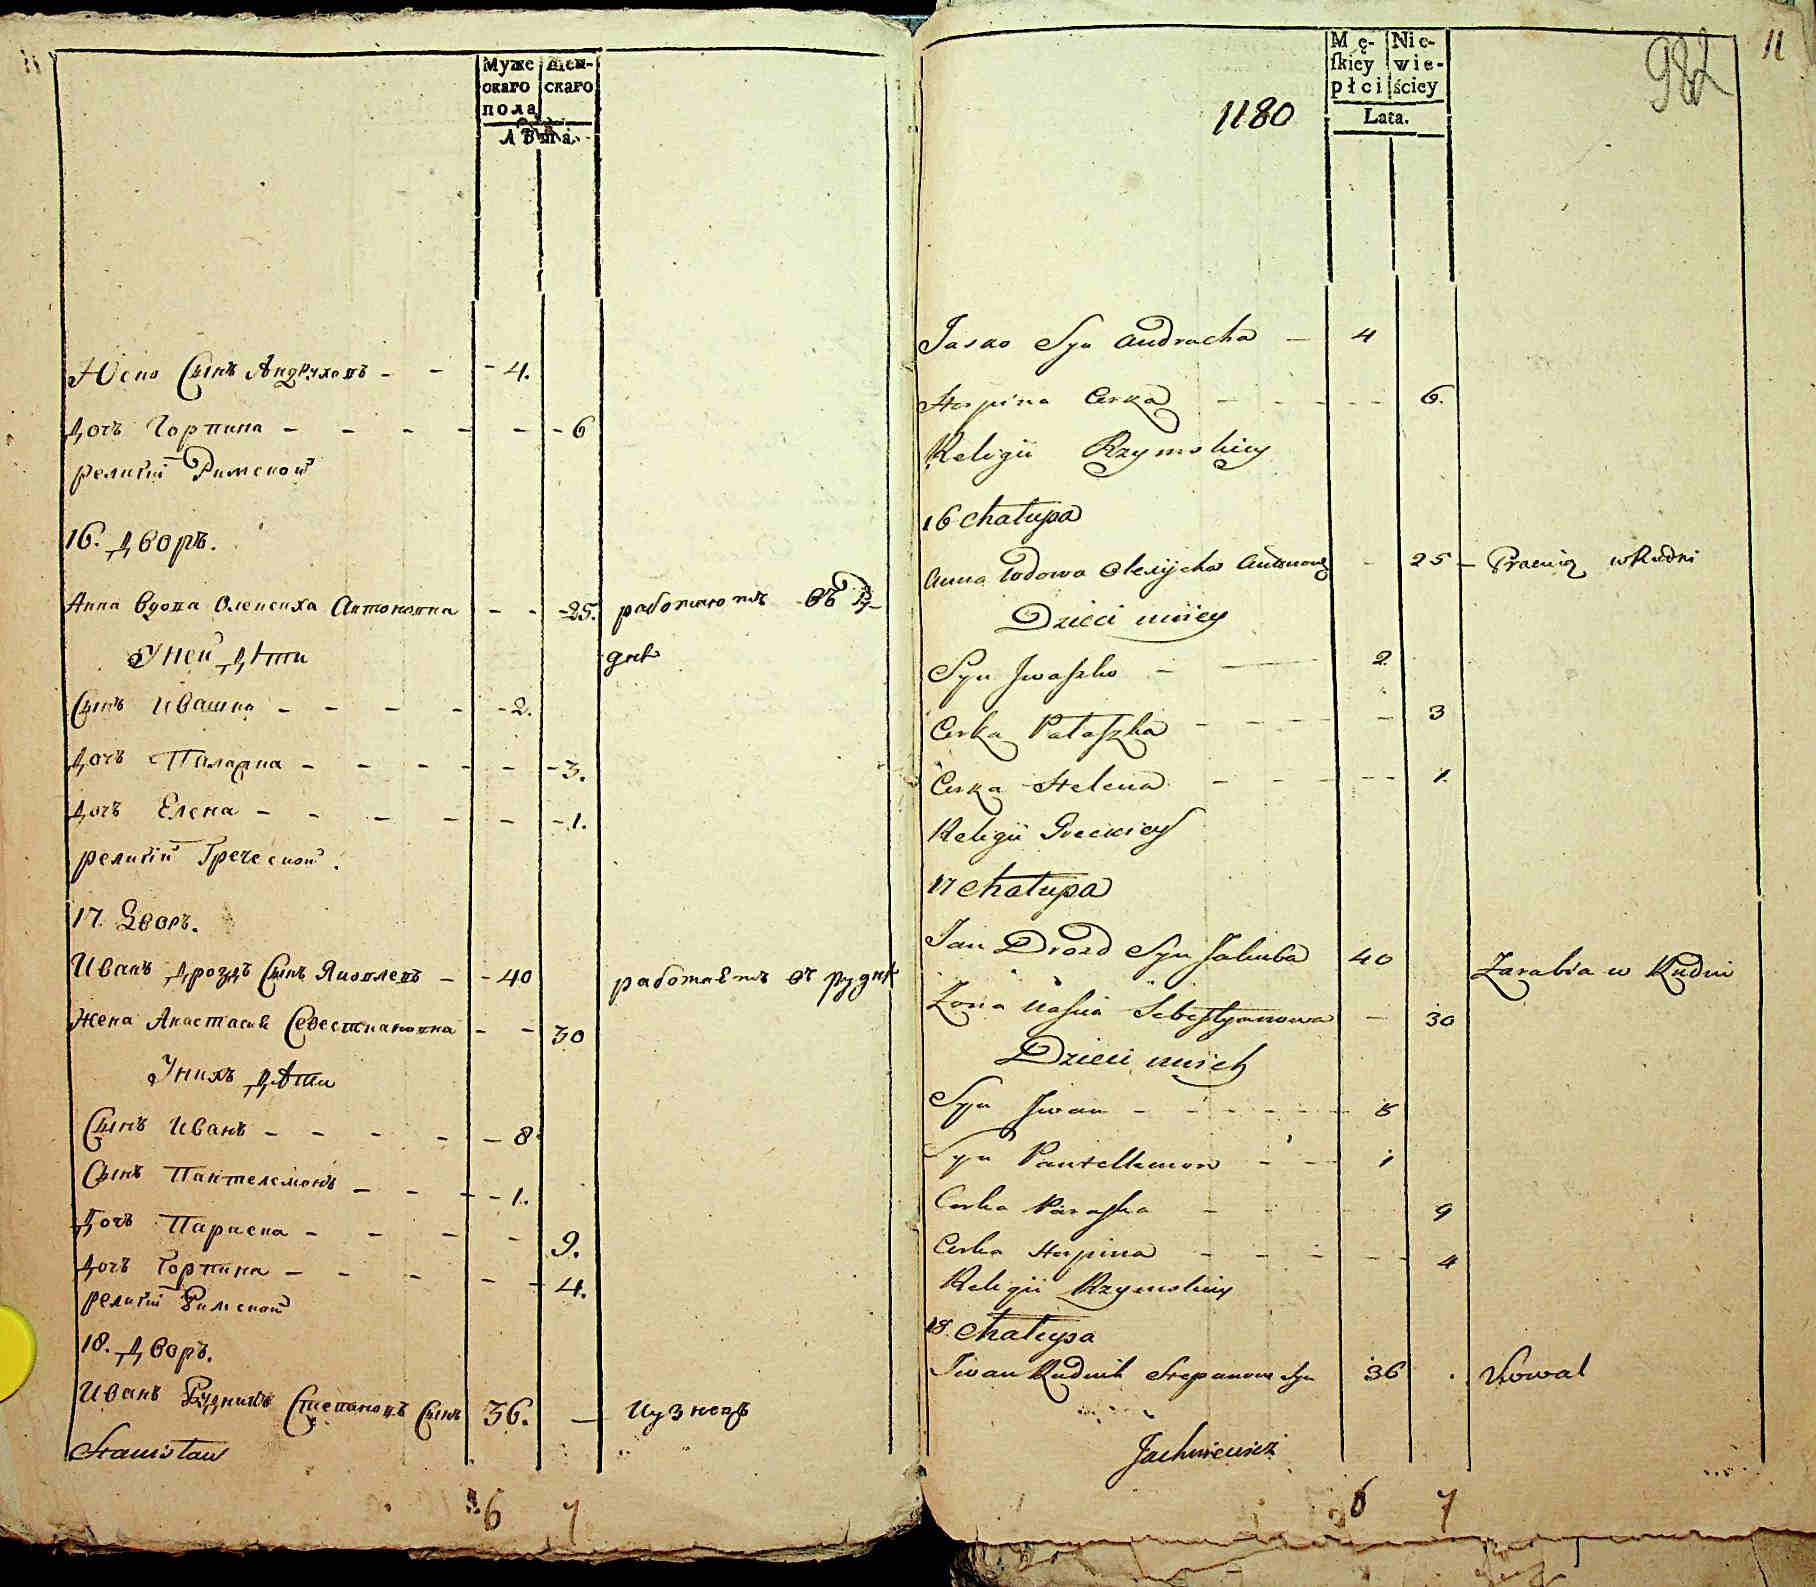 Муже Жен-
скаго скаго
пола
Лѣта.
Юско Сынъ Андруховъ - - - 4.
Дочь Горпина - - - - - - 6
религіи Римской
16. Дворъ.
Анна вдова Олексиха Антоновна - - - 25. работаютъ въ Ру-
У ней дѣти днѣ
Сынъ Ивашко - - - - - 2.
Дочь Палашка - - - - - - 3.
Дочь Елена - - - - - - 1.
религіи Греческой.
17. Дворъ.
Иванъ Дроздъ Сынъ Яковлевъ - - 40 работаетъ въ руднѣ
Жена Анастасия Севестиановна - - 30
У нихъ дѣти
Сынъ Иванъ - - - - - 8
Сынъ Пантелемонъ - - - - 1.
Дочь Параска - - - - 9.
Дочь Горпина - - - - - 4.
религіи Римской
18. Дворъ.
Иванъ Рудникъ Степановъ Сынъ 36. — Кузнецъ
Stanisław
6 7
11
982
1180
Mę- Nie-
ſkiey wie-
płci ściey
Lata.
Jasko Syn Andrucha — 4
Horpina Corka - - - - - 6.
Religii Rzymskiey
16 Chałupa
Anna Wdowa Olexiicha Antonowa - 25 - Pracuią w Rudni
Dzieci u niey
Syn Jwaſzko - — 2
Corka Pałaſzka - - - - - 3
Corka Helena - - - - - 1.
Religii Greckiey
17 Chałupa
Jan Drozd Syn Jakuba 40 Zarabia w Rudni
Żona Naſtia Sebeſtyanowa — 30
Dzieci u nich
Syn Jwan - - - - - - 8
Syn Pantellemon - - - 1
Corka Paraſka - - - 9
Corka Horpina - - - - - - 4
Religii Rzymskiey
18. Chałupa
Jwan Rudnik Stepanow Syn 36 . Kowal
Jachniewicz
6 7